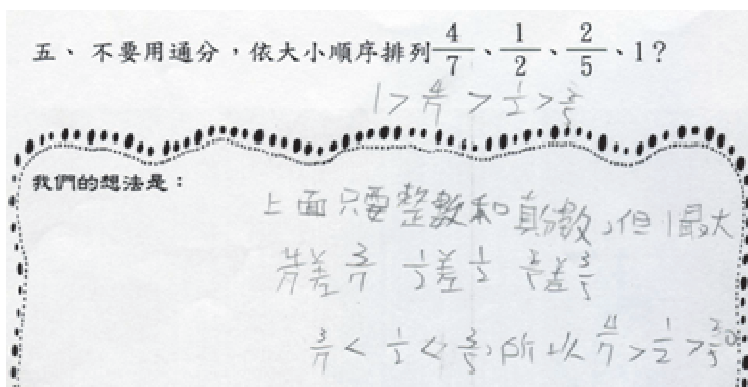 五、不要用通分，依大小順序排列 4/7、1/2、2/5、1？
1 > 4/7 > 1/2 > 2/5
我們的想法是：
上面只要整數和真分數，但1最大
4/7差3/7 1/2差1/2 2/5差3/5
3/7 < 1/2 < 3/5，所以 4/7 > 1/2 > 2/5。